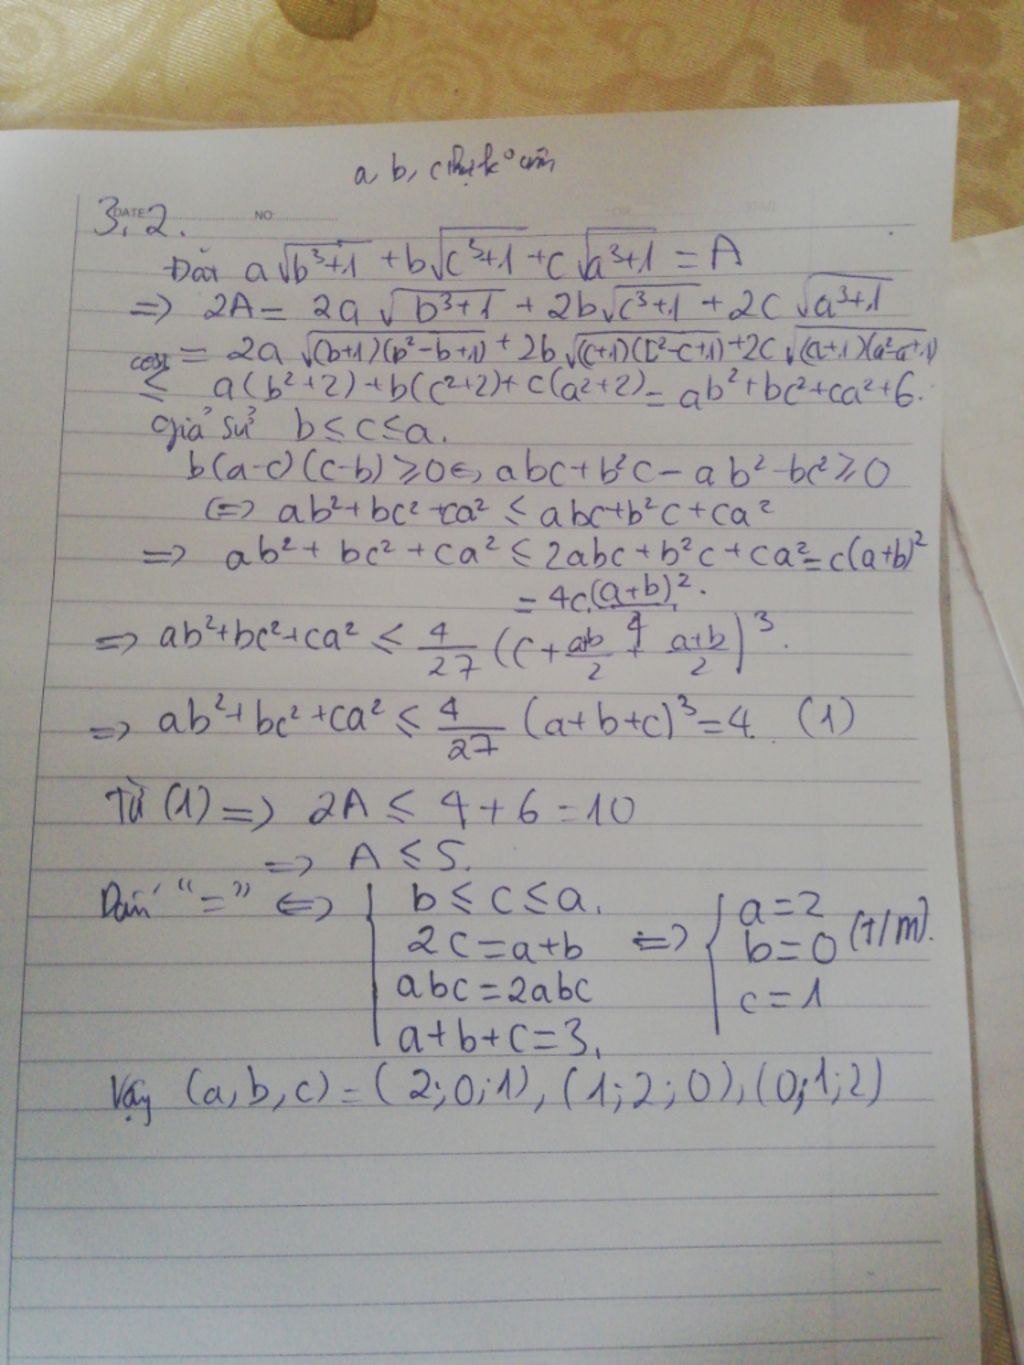 a, b, c thực k° âm
DATE NO
3.2.
Đặt a√(b³+1) + b√(c³+1) + c√(a³+1) = A
=> 2A = 2a√(b³+1) + 2b√(c³+1) + 2c√(a³+1)
= 2a√((b+1)(b²-b+1)) + 2b√((c+1)(c²-c+1)) + 2c√((a+1)(a²-a+1))
cosi ≤ a(b²+2)+b(c²+2)+c(a²+2) = ab²+bc²+ca²+6.
Giả sử b≤c≤a.
b(a-c)(c-b)≥0 <=> abc+b²c-ab²-bc²≥0
<=> ab²+bc²+ca² ≤ abc+b²c+ca²
=> ab²+bc²+ca² ≤ 2abc+b²c+ca² = c(a+b)²
= 4c.(a+b)²/4.
=> ab²+bc²+ca² ≤ 4/27 (c + (a+b)/2 + (a+b)/2)³.
=> ab²+bc²+ca² ≤ 4/27 (a+b+c)³ = 4. (1)
Từ (1) => 2A ≤ 4+6 = 10
=> A ≤ 5.
Dấu "=" <=> { b≤c≤a.
2c=a+b <=> { a=2
abc=2abc b=0 (T/m).
a+b+c=3. c=1
Vậy (a,b,c) = (2;0;1), (1;2;0), (0;1;2)